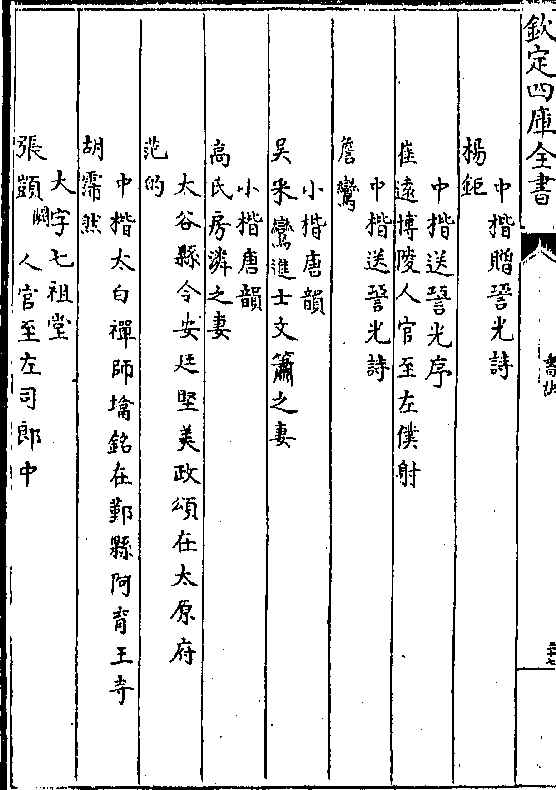 欽定四庫全書
中楷贈䛒光詩
楊鉅
中楷送䛒光序
崔遠博陵人官至左僕射
中楷送䛒光詩
詹鸞
小楷唐韻
吳采鸞進士文簫之妻
小楷唐韻
高氏房璘之妻
太谷縣令安廷堅美政頌在太原府
范的
中楷太白禪師墖銘在鄞縣阿育王寺
胡霈然
大字七祖堂
張顗闕人官至左司郎中